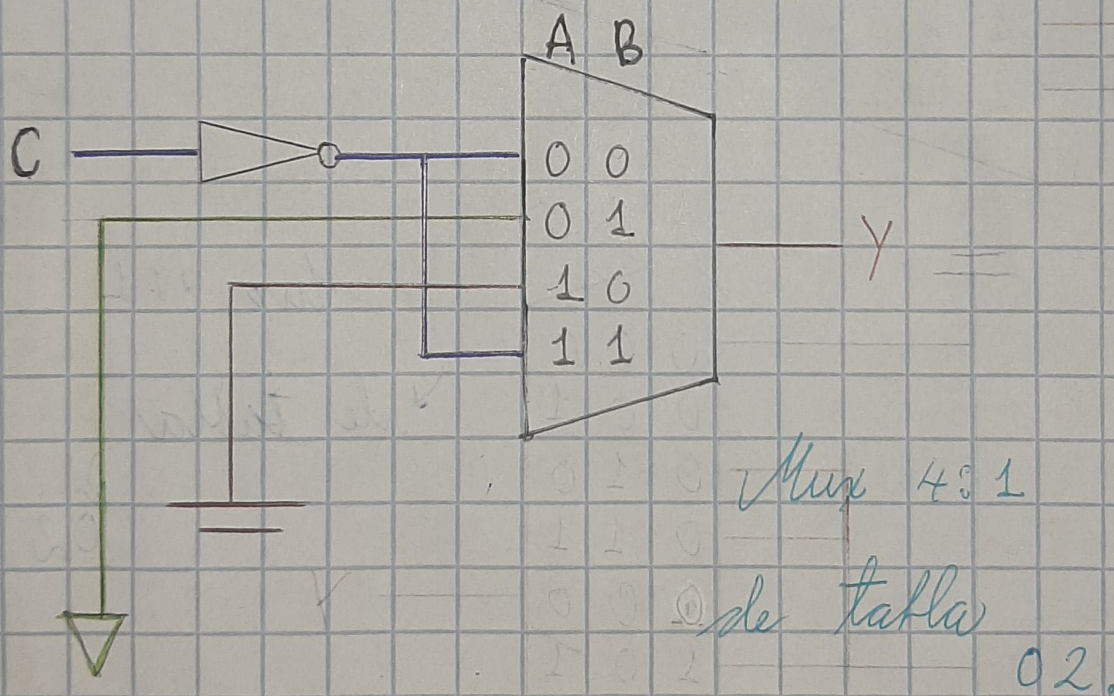 A B
C
0 0
0 1
1 0
1 1
Y
Mux 4:1
de tabla
02.